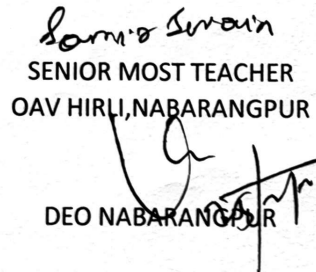 SENIOR MOST TEACHER
OAV HIRLI,NABARANGPUR
DEO NABARANGPUR